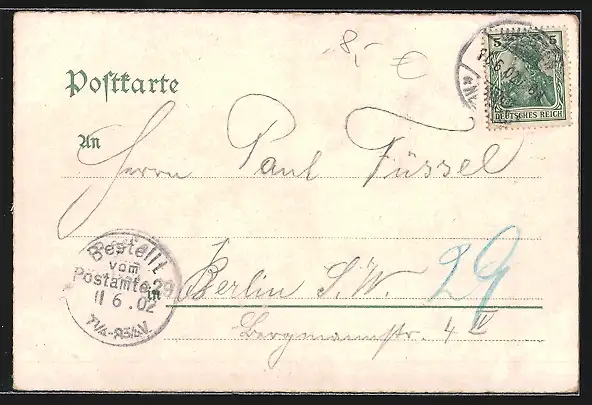 8,- €
Postkarte
5 5
DEUTSCHES REICH
An
Herrn Paul Füssel
Bestellt
vom
Postamte 29
11 6.02
7¼-8¾V.
in
Berlin S.W. 29
Bergmannstr. 4 IV